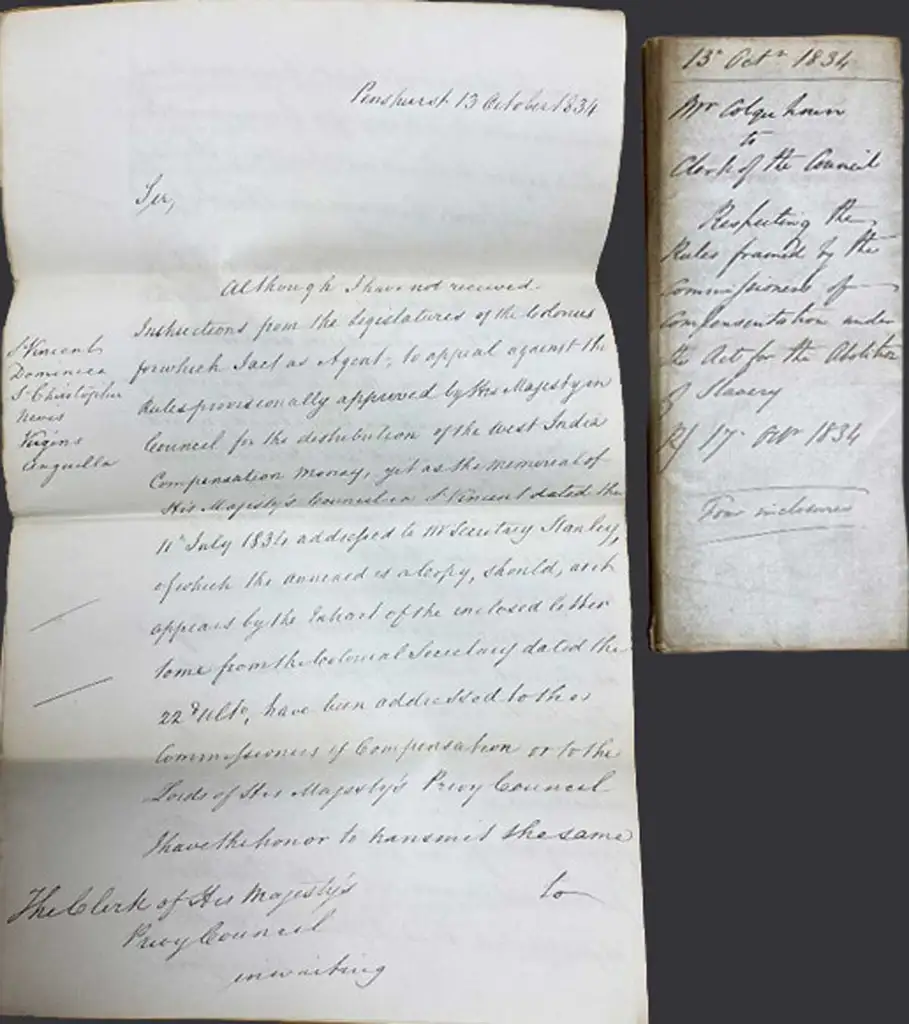 Penshurst 13 October 1834
Sir,
Although I have not received
Instructions from the Legislatures of the Colonies
for which I act as Agent, to appeal against the
Rules provisionally approved by His Majesty in
Council for the distribution of the West India
Compensation Money, yet as the memorial of
His Majesty's Council in St Vincent dated the
11th July 1834 addressed to Mr Secretary Stanley,
of which the annexed is a Copy, should, as it
appears by the Extract of the inclosed letter
to me from the Colonial Secretary dated the
22d Ulto, have been addressed to the
Commissioners of Compensation or to the
Lords of His Majesty's Privy Council
I have the honor to transmit the same
to
The Clerk of His Majesty's
Privy Council
in waiting
St Vincent
Dominica
St Christopher
Nevis
Virgins
Anguilla
13 Octr 1834
Mr Colquhoun
to
Clerk of the Council
Respecting the
Rules framed by the
Commissioners of
Compensation under
the Act for the Abolition
of Slavery
17 Octr 1834
Four inclosures